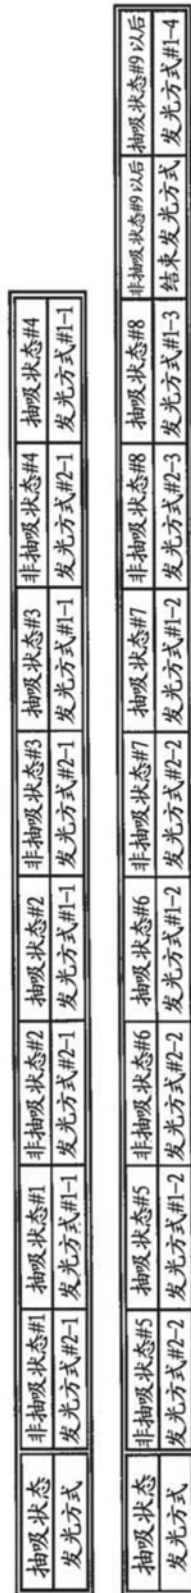 抽吸状态 非抽吸状态#1 抽吸状态#1 非抽吸状态#2 抽吸状态#2 非抽吸状态#3 抽吸状态#3 非抽吸状态#4 抽吸状态#4
发光方式 发光方式#2-1 发光方式#1-1 发光方式#2-1 发光方式#1-1 发光方式#2-1 发光方式#1-1 发光方式#2-1 发光方式#1-1
抽吸状态 非抽吸状态#5 抽吸状态#5 非抽吸状态#6 抽吸状态#6 非抽吸状态#7 抽吸状态#7 非抽吸状态#8 抽吸状态#8 非抽吸状态#9以后 抽吸状态#9以后
发光方式 发光方式#2-2 发光方式#1-2 发光方式#2-2 发光方式#1-2 发光方式#2-2 发光方式#1-2 发光方式#2-3 发光方式#1-3 结束发光方式 发光方式#1-4